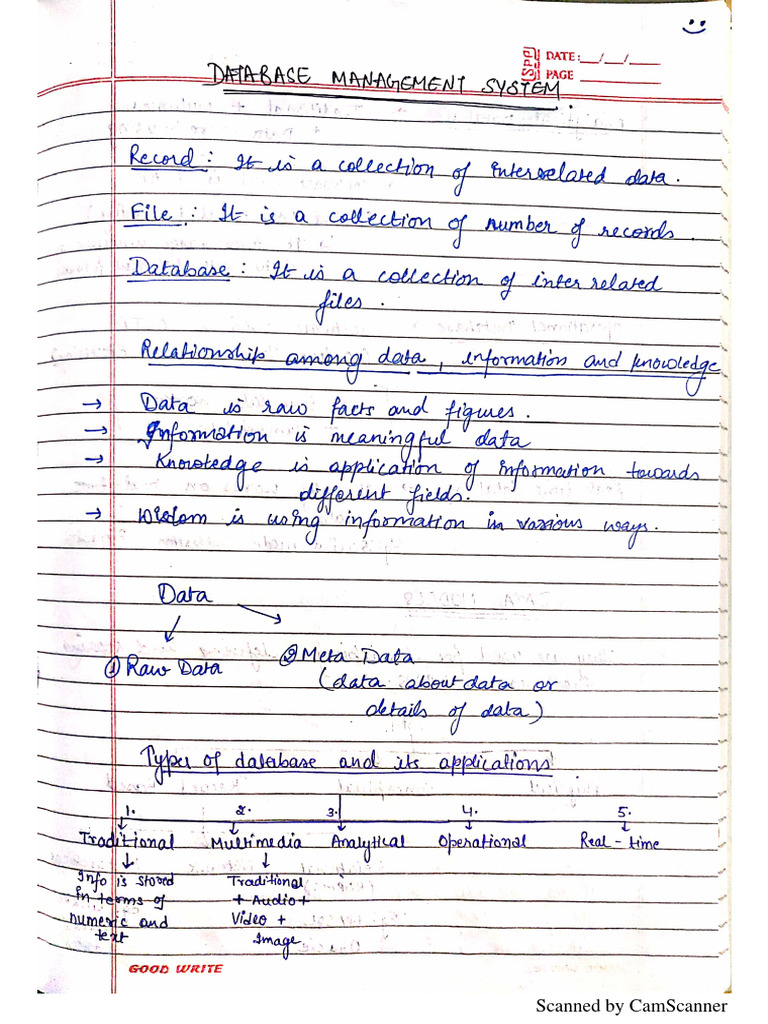 SPP DATE: __/__/____
PAGE ________
DATABASE MANAGEMENT SYSTEM.
Record : It is a collection of interrelated data.
File : It is a collection of number of records.
Database : It is a collection of inter related
files.
Relationship among data, information and knowledge
→ Data is raw facts and figures.
→ Information is meaningful data
→ Knowledge is application of information towards
different fields.
→ Wisdom is using information in various ways.
Data
① Raw Data ② Meta Data
(data about data or
details of data)
Types of database and its applications
1. 2. 3. 4. 5.
Traditional Multimedia Analytical Operational Real-time
Info is stored Traditional
in terms of + Audio +
numeric and Video +
text Image
GOOD WRITE
Scanned by CamScanner